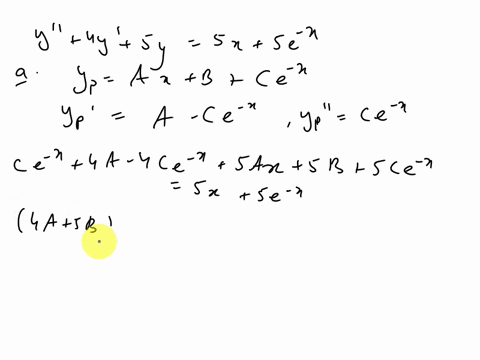 y'' + 4y' + 5y = 5x + 5e^{-x}
a. y_p = Ax + B + Ce^{-x}
y_p' = A - Ce^{-x}, y_p'' = Ce^{-x}
Ce^{-x} + 4A - 4Ce^{-x} + 5Ax + 5B + 5Ce^{-x}
= 5x + 5e^{-x}
(4A + 5B)